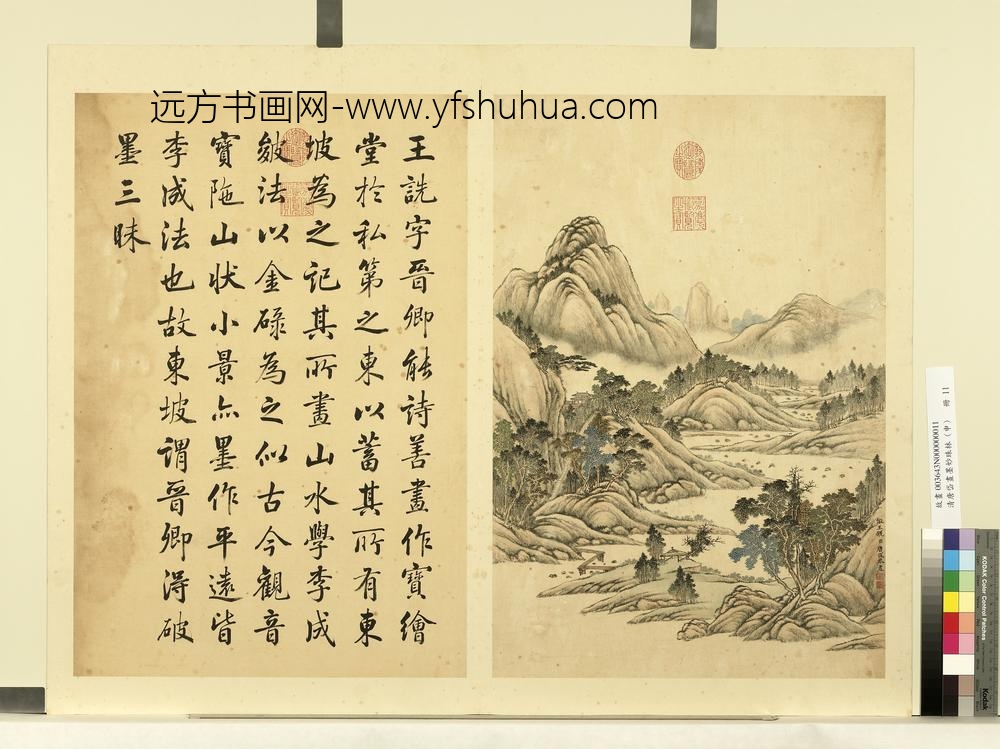 远方书画网-www.yfshuhua.com
王詵字晉卿能詩善畫作寶繪
堂於私第之東以蓄其所有東
坡為之記其所畫山水學李成
皴法以金碌為之似古今觀音
寶陁山狀小景亦墨作平遠皆
李成法也故東坡謂晉卿得破
墨三昧
故畫003643N000000011
清唐岱畫墨妙珠林（申） 冊 11
KODAK Color Control Patches
Kodak